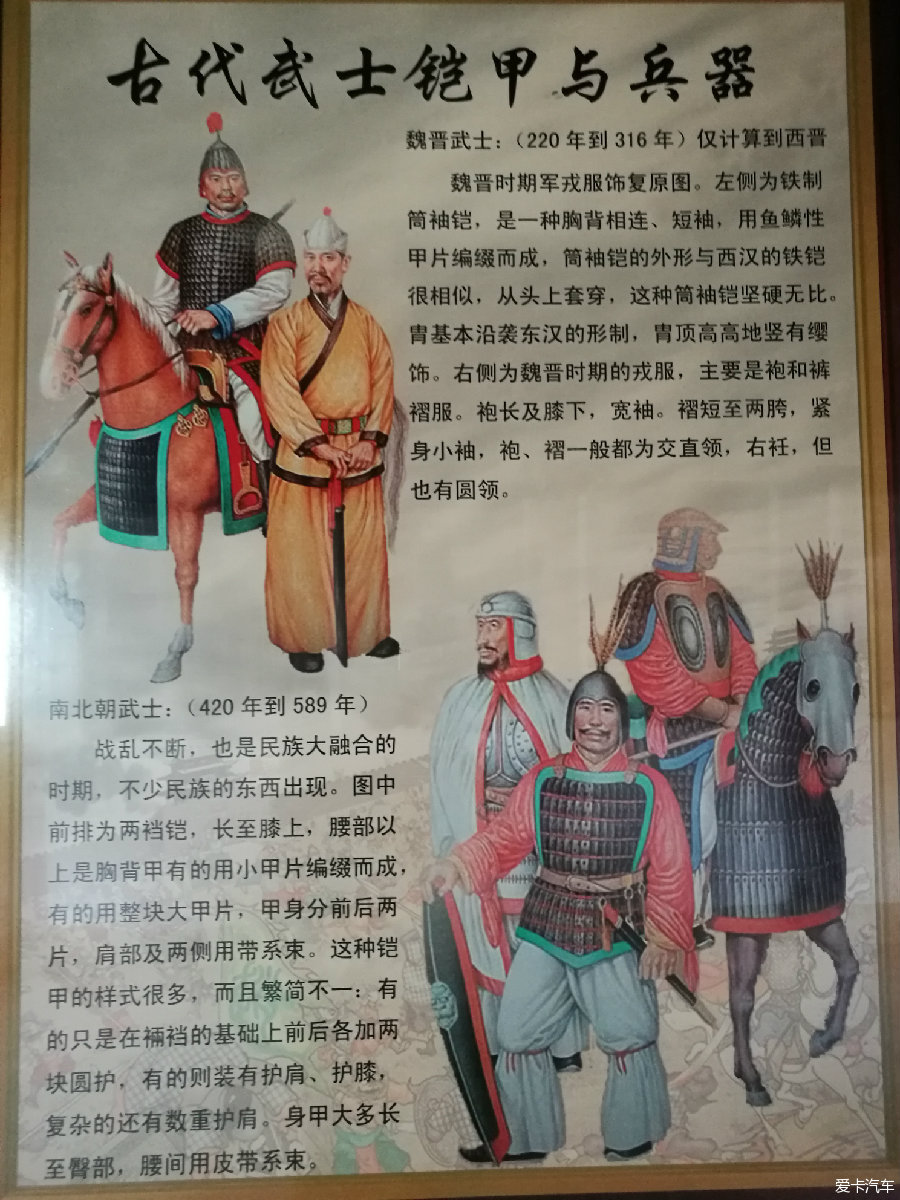 古代武士铠甲与兵器
魏晋武士：（220 年到 316 年）仅计算到西晋
魏晋时期军戎服饰复原图。左侧为铁制
筒袖铠，是一种胸背相连、短袖，用鱼鳞性
甲片编缀而成，筒袖铠的外形与西汉的铁铠
很相似，从头上套穿，这种筒袖铠坚硬无比。
胄基本沿袭东汉的形制，胄顶高高地竖有缨
饰。右侧为魏晋时期的戎服，主要是袍和裤
褶服。袍长及膝下，宽袖。褶短至两胯，紧
身小袖，袍、褶一般都为交直领，右衽，但
也有圆领。
南北朝武士：（420 年到 589 年）
战乱不断，也是民族大融合的
时期，不少民族的东西出现。图中
前排为两裆铠，长至膝上，腰部以
上是胸背甲有的用小甲片编缀而成，
有的用整块大甲片，甲身分前后两
片，肩部及两侧用带系束。这种铠
甲的样式很多，而且繁简不一：有
的只是在裲裆的基础上前后各加两
块圆护，有的则装有护肩、护膝，
复杂的还有数重护肩。身甲大多长
至臀部，腰间用皮带系束。
爱卡汽车